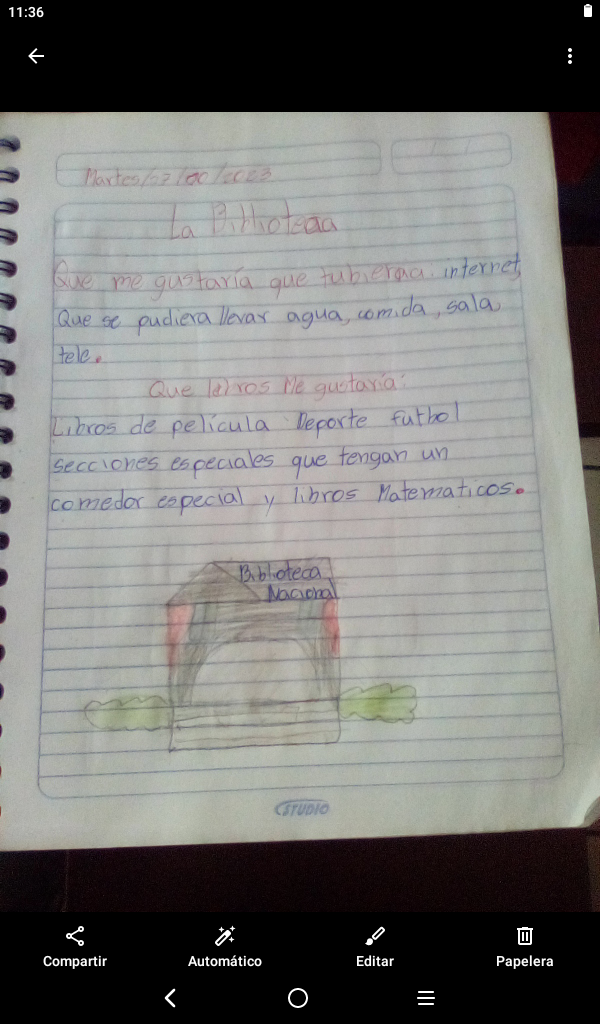 11:36
Martes/27/00/2023
La Biblioteca
Que me gustaría que tubieraa. internet,
Que se pudiera llevar agua, comida, sala
tele.
Que libros Me gustaría:
Libros de película Deporte futbol
secciones especiales que tengan un
comedor especial y libros Matematicos.
Biblioteca
Nacional
STUDIO
Compartir
Automático
Editar
Papelera